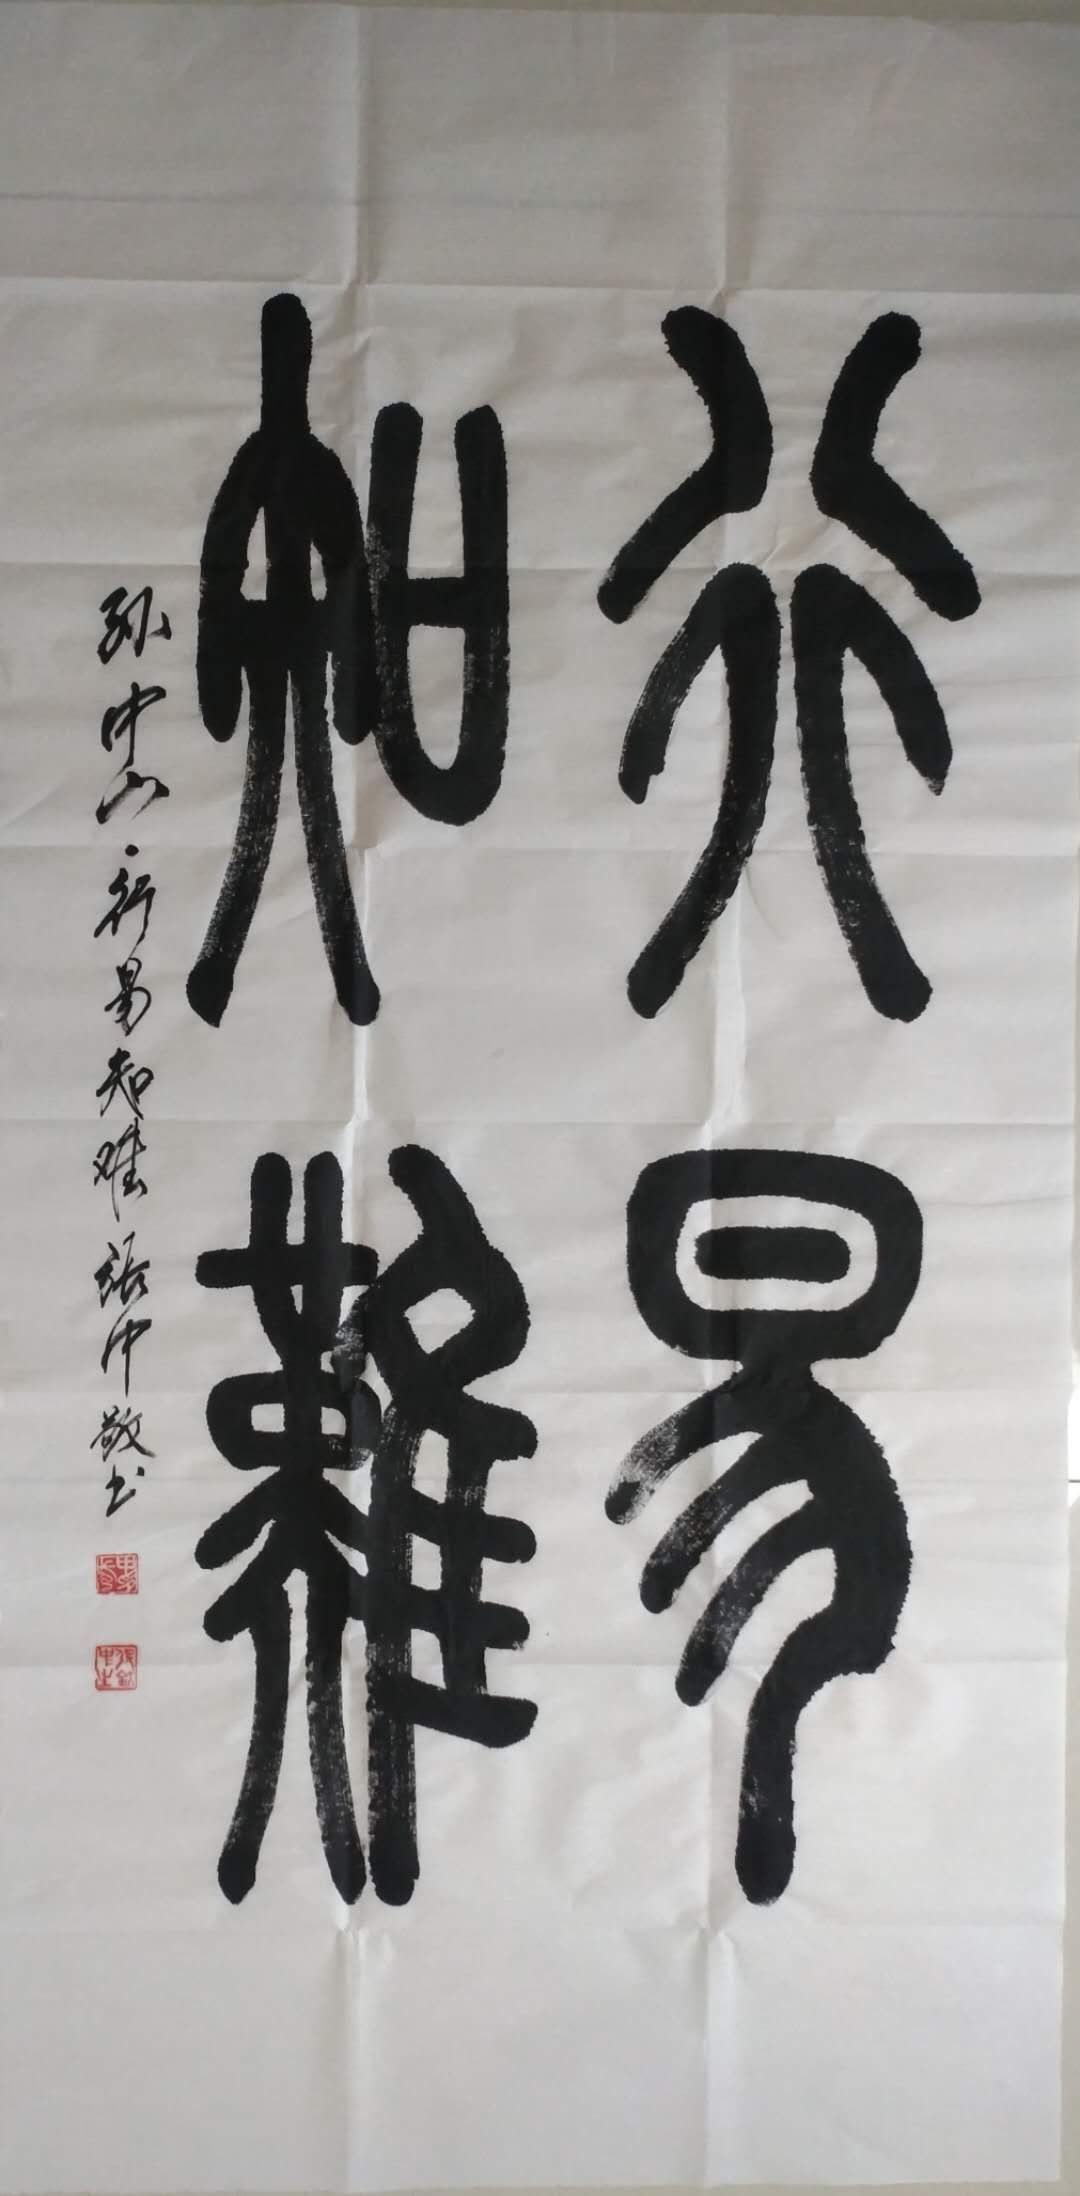 行易
知難
孙中山·行易知难 張中敬书